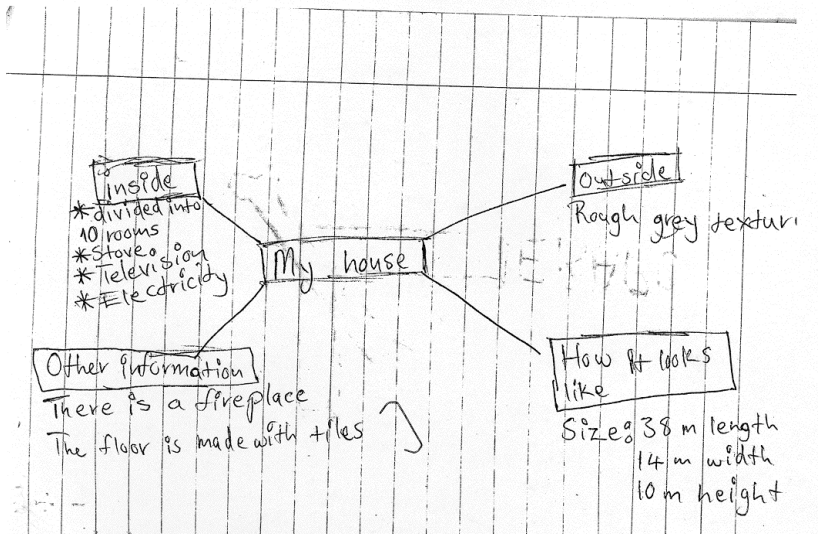 inside
*divided into
10 rooms
*Stove.
*Television
*Electricity
Outside
Rough grey
My house
Other information
There is a fireplace
The floor is made with tiles
How it looks
like
Size: 38 m length
14 m width
10 m height